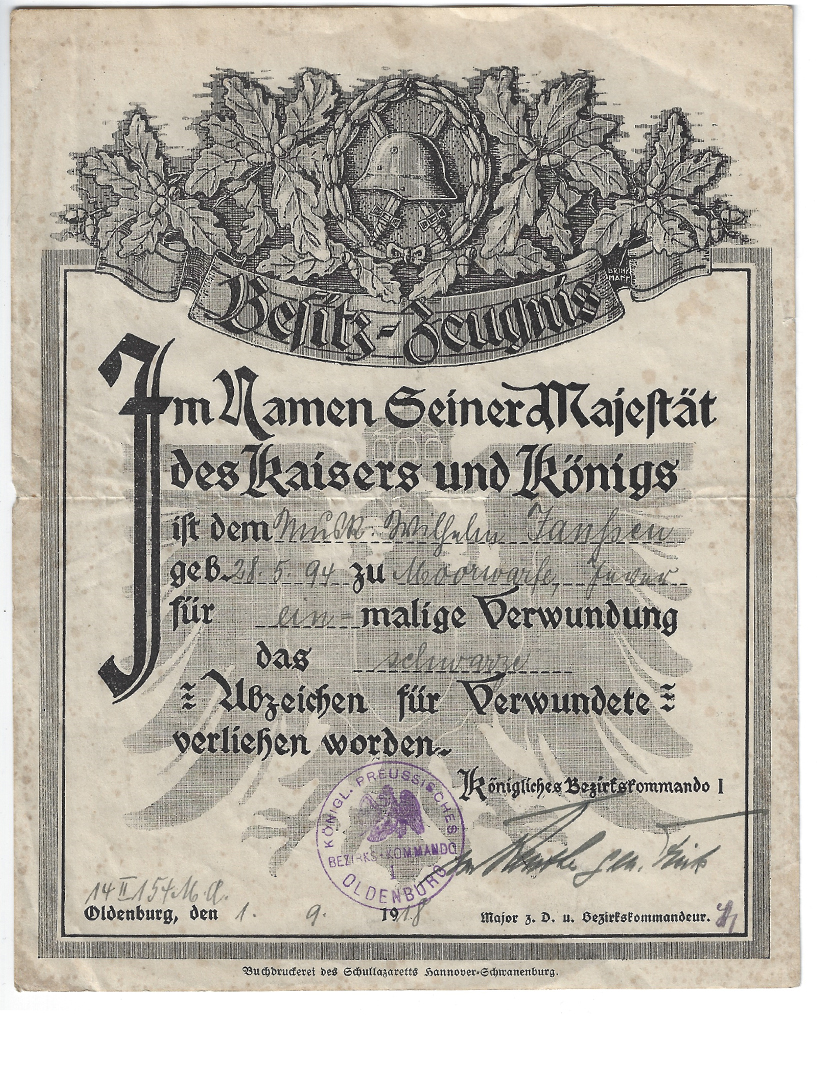 BRINK
MANN
Besitz-Zeugnis
Im Namen Seiner Majestät
des Kaisers und Königs
ist dem Musk. Wilhelm Janßen
geb. 28. 5. 94 zu Moorwarfe, Jever
für ein-malige Verwundung
das schwarze
Abzeichen für Verwundete
verliehen worden.
Königliches Bezirkskommando I
KÖNIGL. PREUSSISCHES
BEZIRKS-KOMMANDO
I
OLDENBURG
14 II 154
Oldenburg, den 1. 9. 1918
Major z. D. u. Bezirkskommandeur.
Buchdruckerei des Schullazaretts Hannover-Schwanenburg.